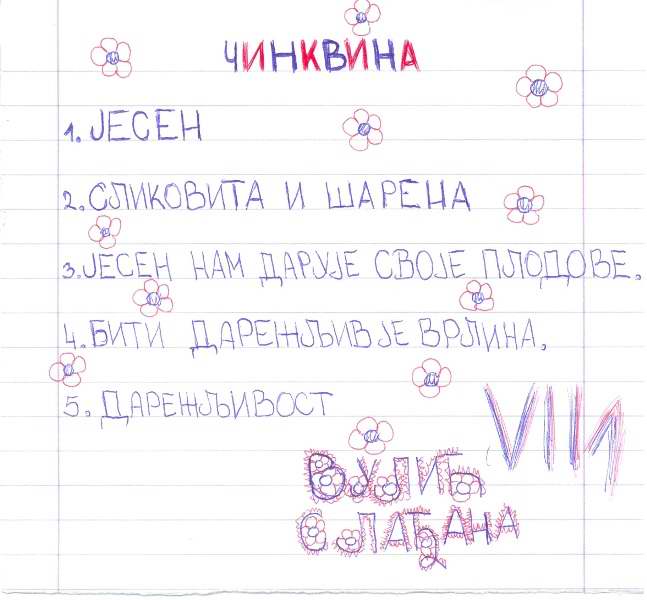 ЧИНКВИНА
1. ЈЕСЕН
2. СЛИКОВИТА И ШАРЕНА
3. ЈЕСЕН НАМ ДАРУЈЕ СВОЈЕ ПЛОДОВЕ.
4. БИТИ ДАРЕЖЉИВ ЈЕ ВРЛИНА.
5. ДАРЕЖЉИВОСТ
VII И
ВУЛИЋ
СЛАЂАНА